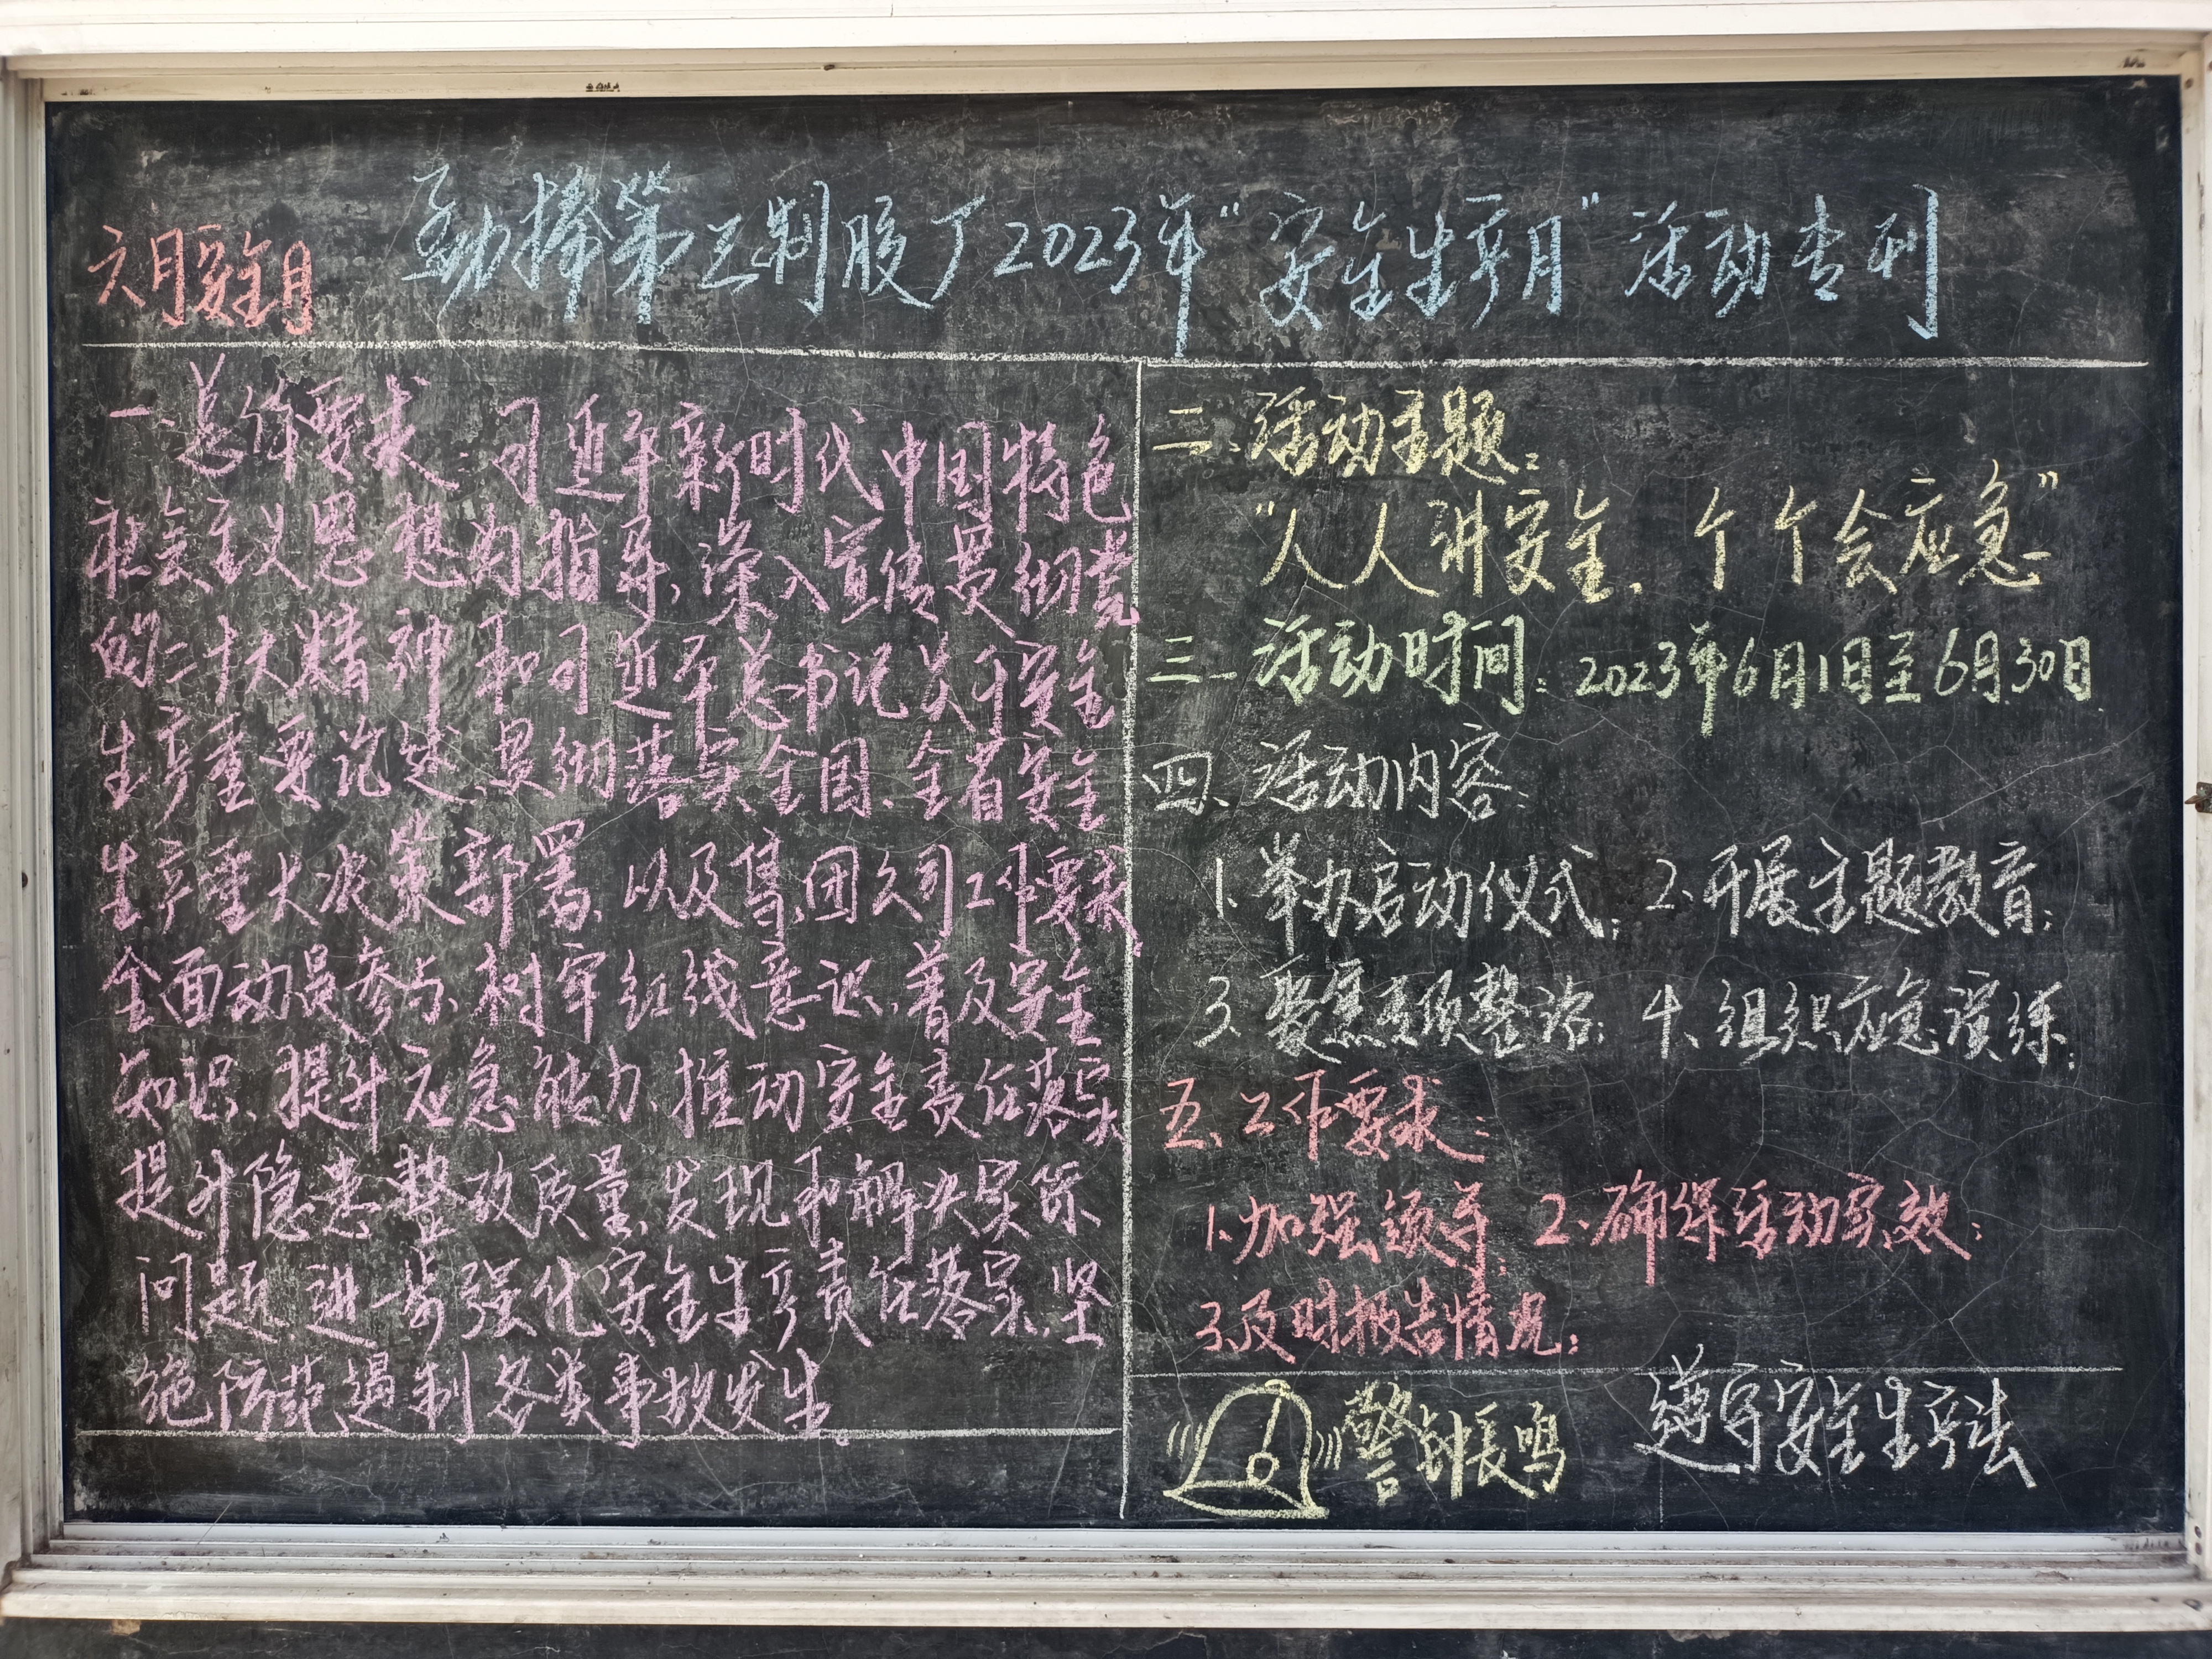 六月安全月
劲棒第三制胶厂2023年“安全生产月”活动专刊
一.总体要求:习近平新时代中国特色
社会主义思想为指导,深入宣传贯彻党
的二十大精神和习近平总书记关于安全
生产重要论述、贯彻落实全国、全省安全
生产重大决策部署、以及集团公司工作要求,
全面动员参与、树牢红线意识、普及安全
知识、提升应急能力、推动安全责任落实
提升隐患整改质量、发现和解决实际
问题,进一步强化安全生产责任落实、坚
绝防范遏制各类事故发生.
二.活动主题:
“人人讲安全、个个会应急”
三.活动时间:2023年6月1日至6月30日
四、活动内容:
1.举办启动仪式; 2.开展主题教育;
3、聚焦专项整治; 4、组织应急演练;
五、工作要求:
1.加强领导; 2.确保活动实效;
3.及时报告情况;
警钟长鸣
遵守安全生产法